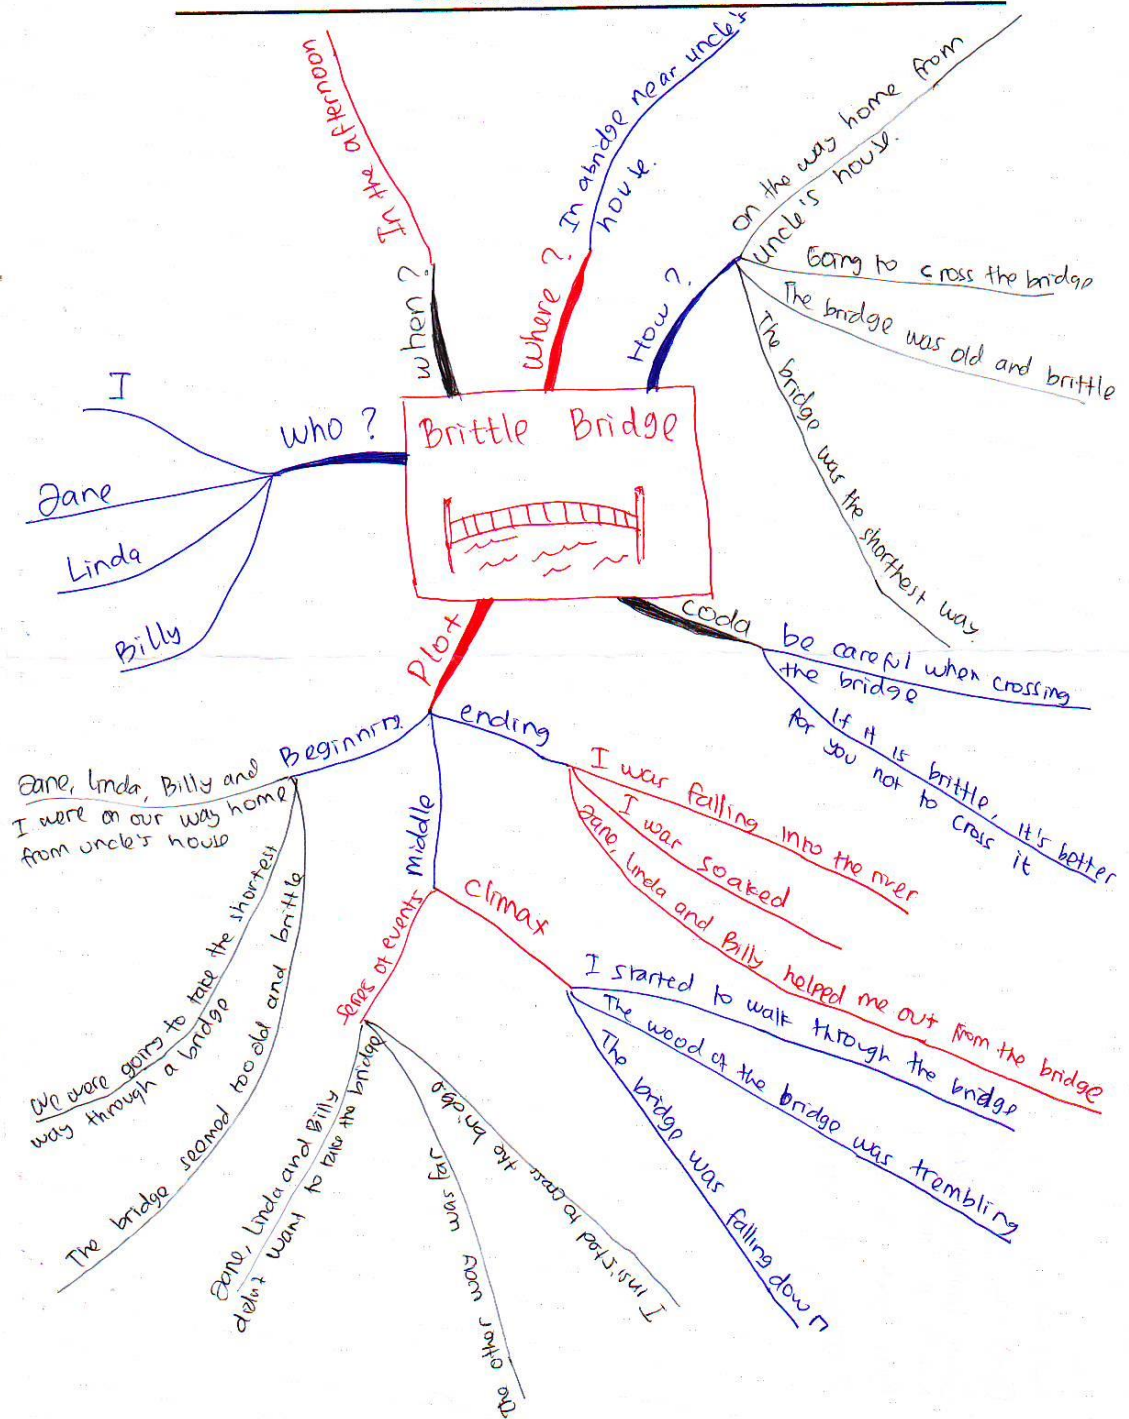 Brittle Bridge
when?
In the afternoon
Where?
In abridge near uncle's
house.
How?
on the way home from
uncle's house.
Going to cross the bridge
The bridge was old and brittle
The bridge was the shorthest way.
who?
I
Jane
Linda
Billy
coda
be careful when crossing
the bridge
If it is brittle, it's better
for you not to cross it
Plot
Beginning
Jane, Linda, Billy and
I were on our way home
from uncle's house
We were going to take the shortest
way through a bridge
The bridge seemed too old and brittle
Middle
Series of events
Jane, Linda and Billy
didn't want to take the bridge
The other way was far
I insisted to cross the bridge
Climax
I started to walk through the bridge
The wood of the bridge was trembling
The bridge was falling down
ending
I was falling into the river
I was soaked
Jane, Linda and Billy helped me out from the bridge